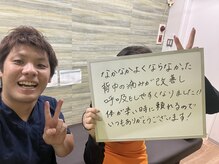 なかなかよくならなかった
背中の痛みが改善し
呼吸もしやすくなりました!!
体が辛い時に頼れるので
いつもありがとうございます!